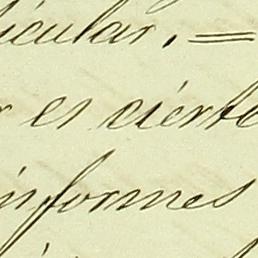 ticular. =
r es cierto
informes